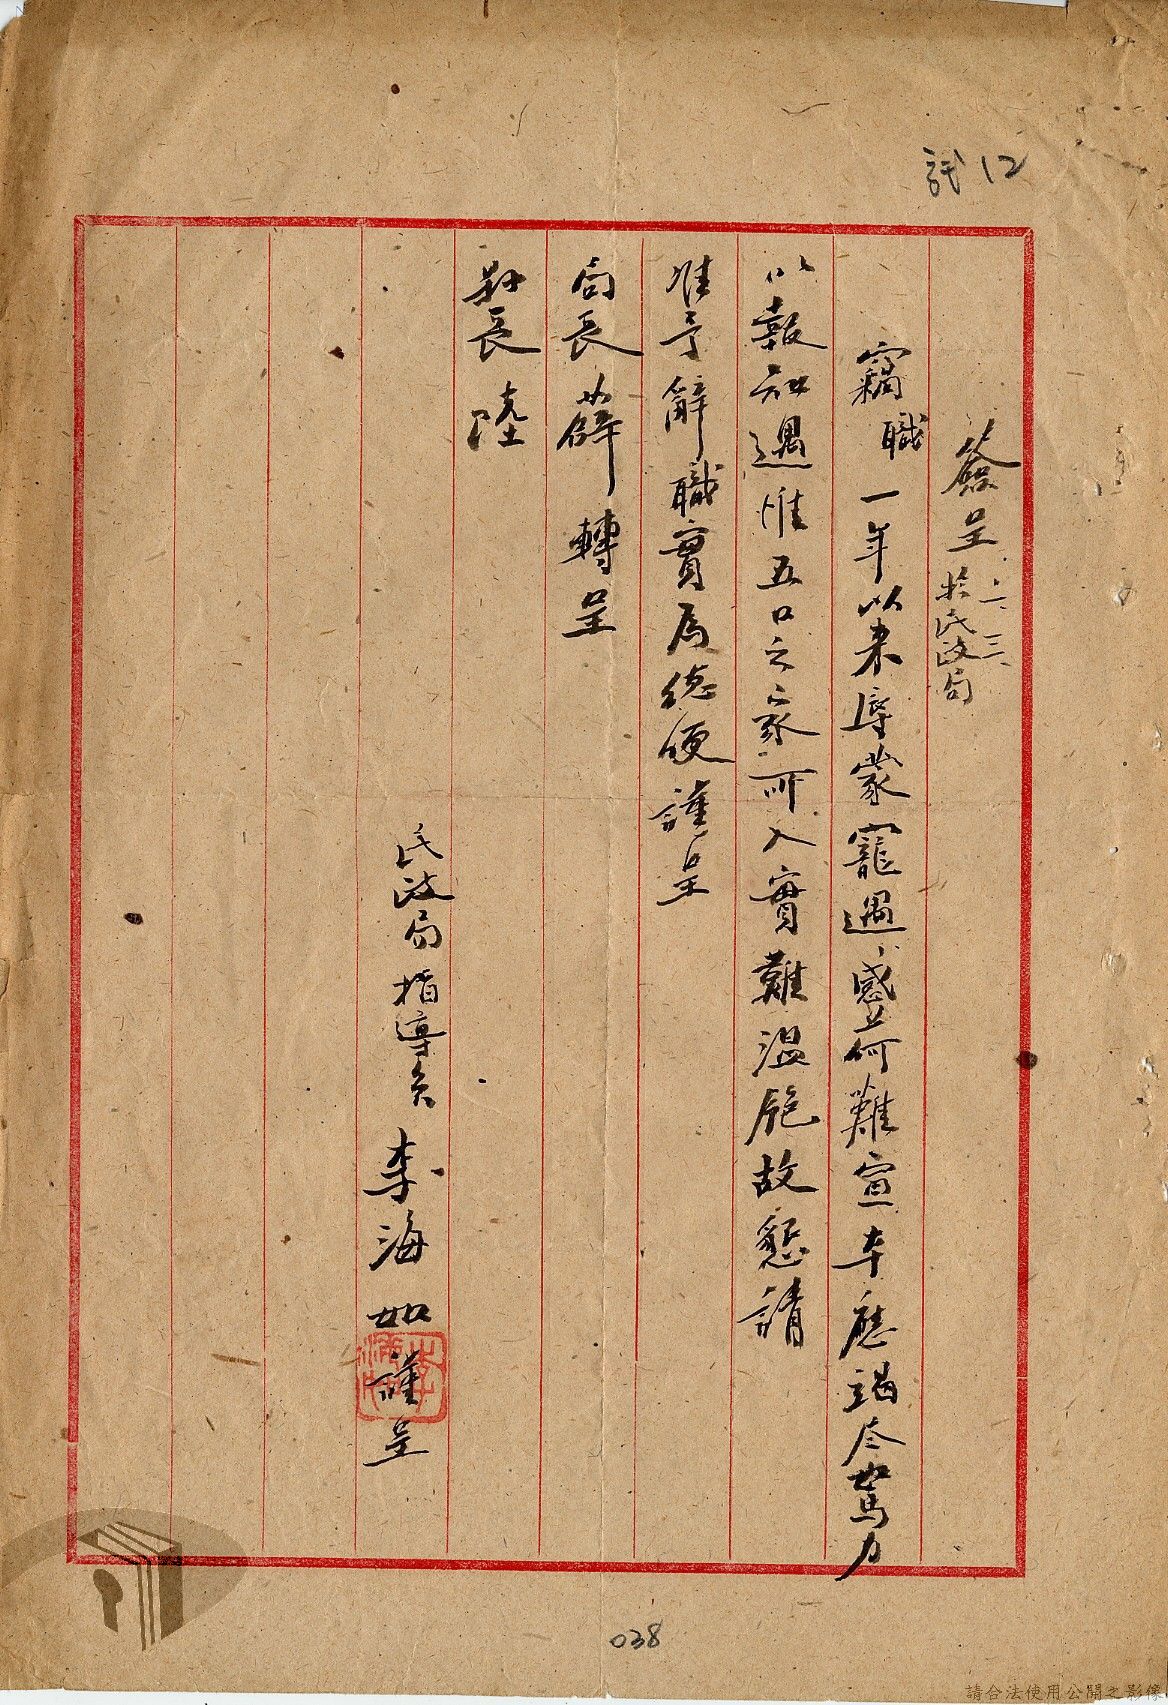 試12
簽呈 六、三、 於民政局
竊職一年以来辱蒙寵遇感荷難宣本應竭尽駑力
以報知遇惟五口之家所入實難温飽故懇請
准予辭職實為德便謹呈
局長薛轉呈
縣長陸
民政局指導員李海如謹呈
038
請合法使用公開之影像